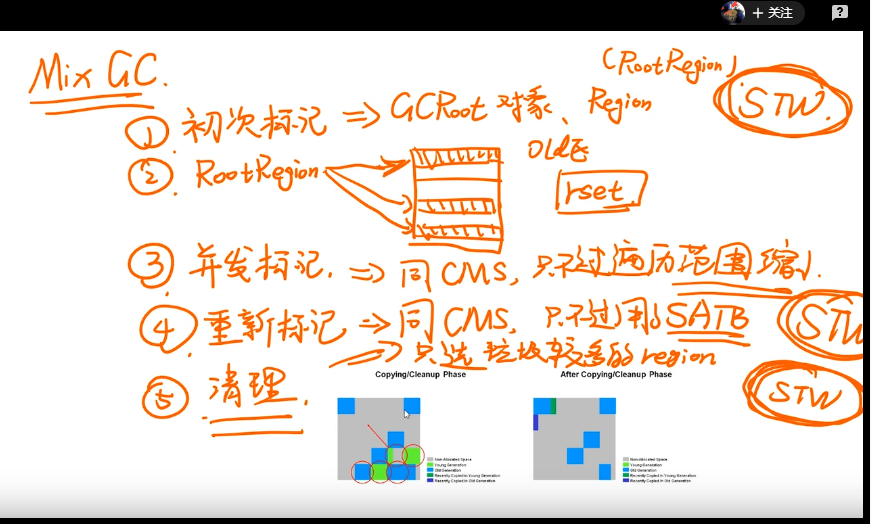 + 关注
Mix GC.
(RootRegion)
① 初次标记 => GCRoot 对象、Region
STW.
② RootRegion
Old区
rset.
③ 并发标记. => 同CMS, 只不过遍历范围缩小.
④ 重新标记 => 同CMS, 只不过用的SATB
STW
→ 只选垃圾较多的region
⑤ 清理.
STW
Copying/Cleanup Phase
After Copying/Cleanup Phase
Non-Allocated Space
Young Generation
Old Generation
Recently Copied in Young Generation
Recently Copied in Old Generation
Non-Allocated Space
Young Generation
Old Generation
Recently Copied in Young Generation
Recently Copied in Old Generation